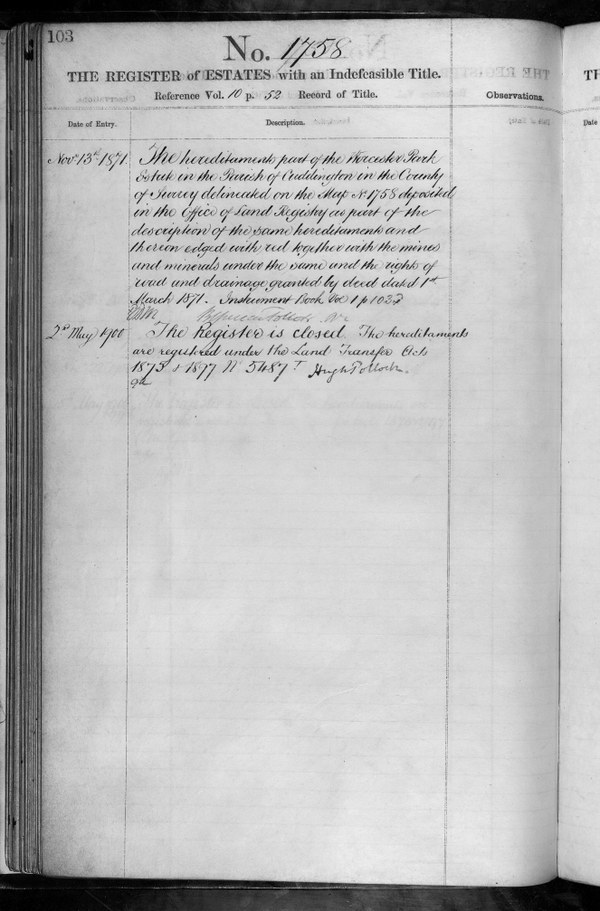 103
No. 1758
THE REGISTER of ESTATES with an Indefeasible Title.
Reference Vol. 10 p. 52 Record of Title.
Observations.
Date of Entry.
Description.
Novr 13th 1871. The hereditaments part of the Worcester Park
Estate in the Parish of Cuddington in the County
of Surrey delineated on the Map No 1758 deposited
in the Office of Land Registry as part of the
description of the same hereditaments and
thereon edged with red together with the mines
and minerals under the same and the rights of
road and drainage granted by deed dated 1st
March 1871. Instrument Book Vol 1 p 1023
2nd May 1900 The Register is closed. The hereditaments
are registered under the Land Transfer Acts
1875 & 1897 No 5487 Hugh Pollock.
TH
Date